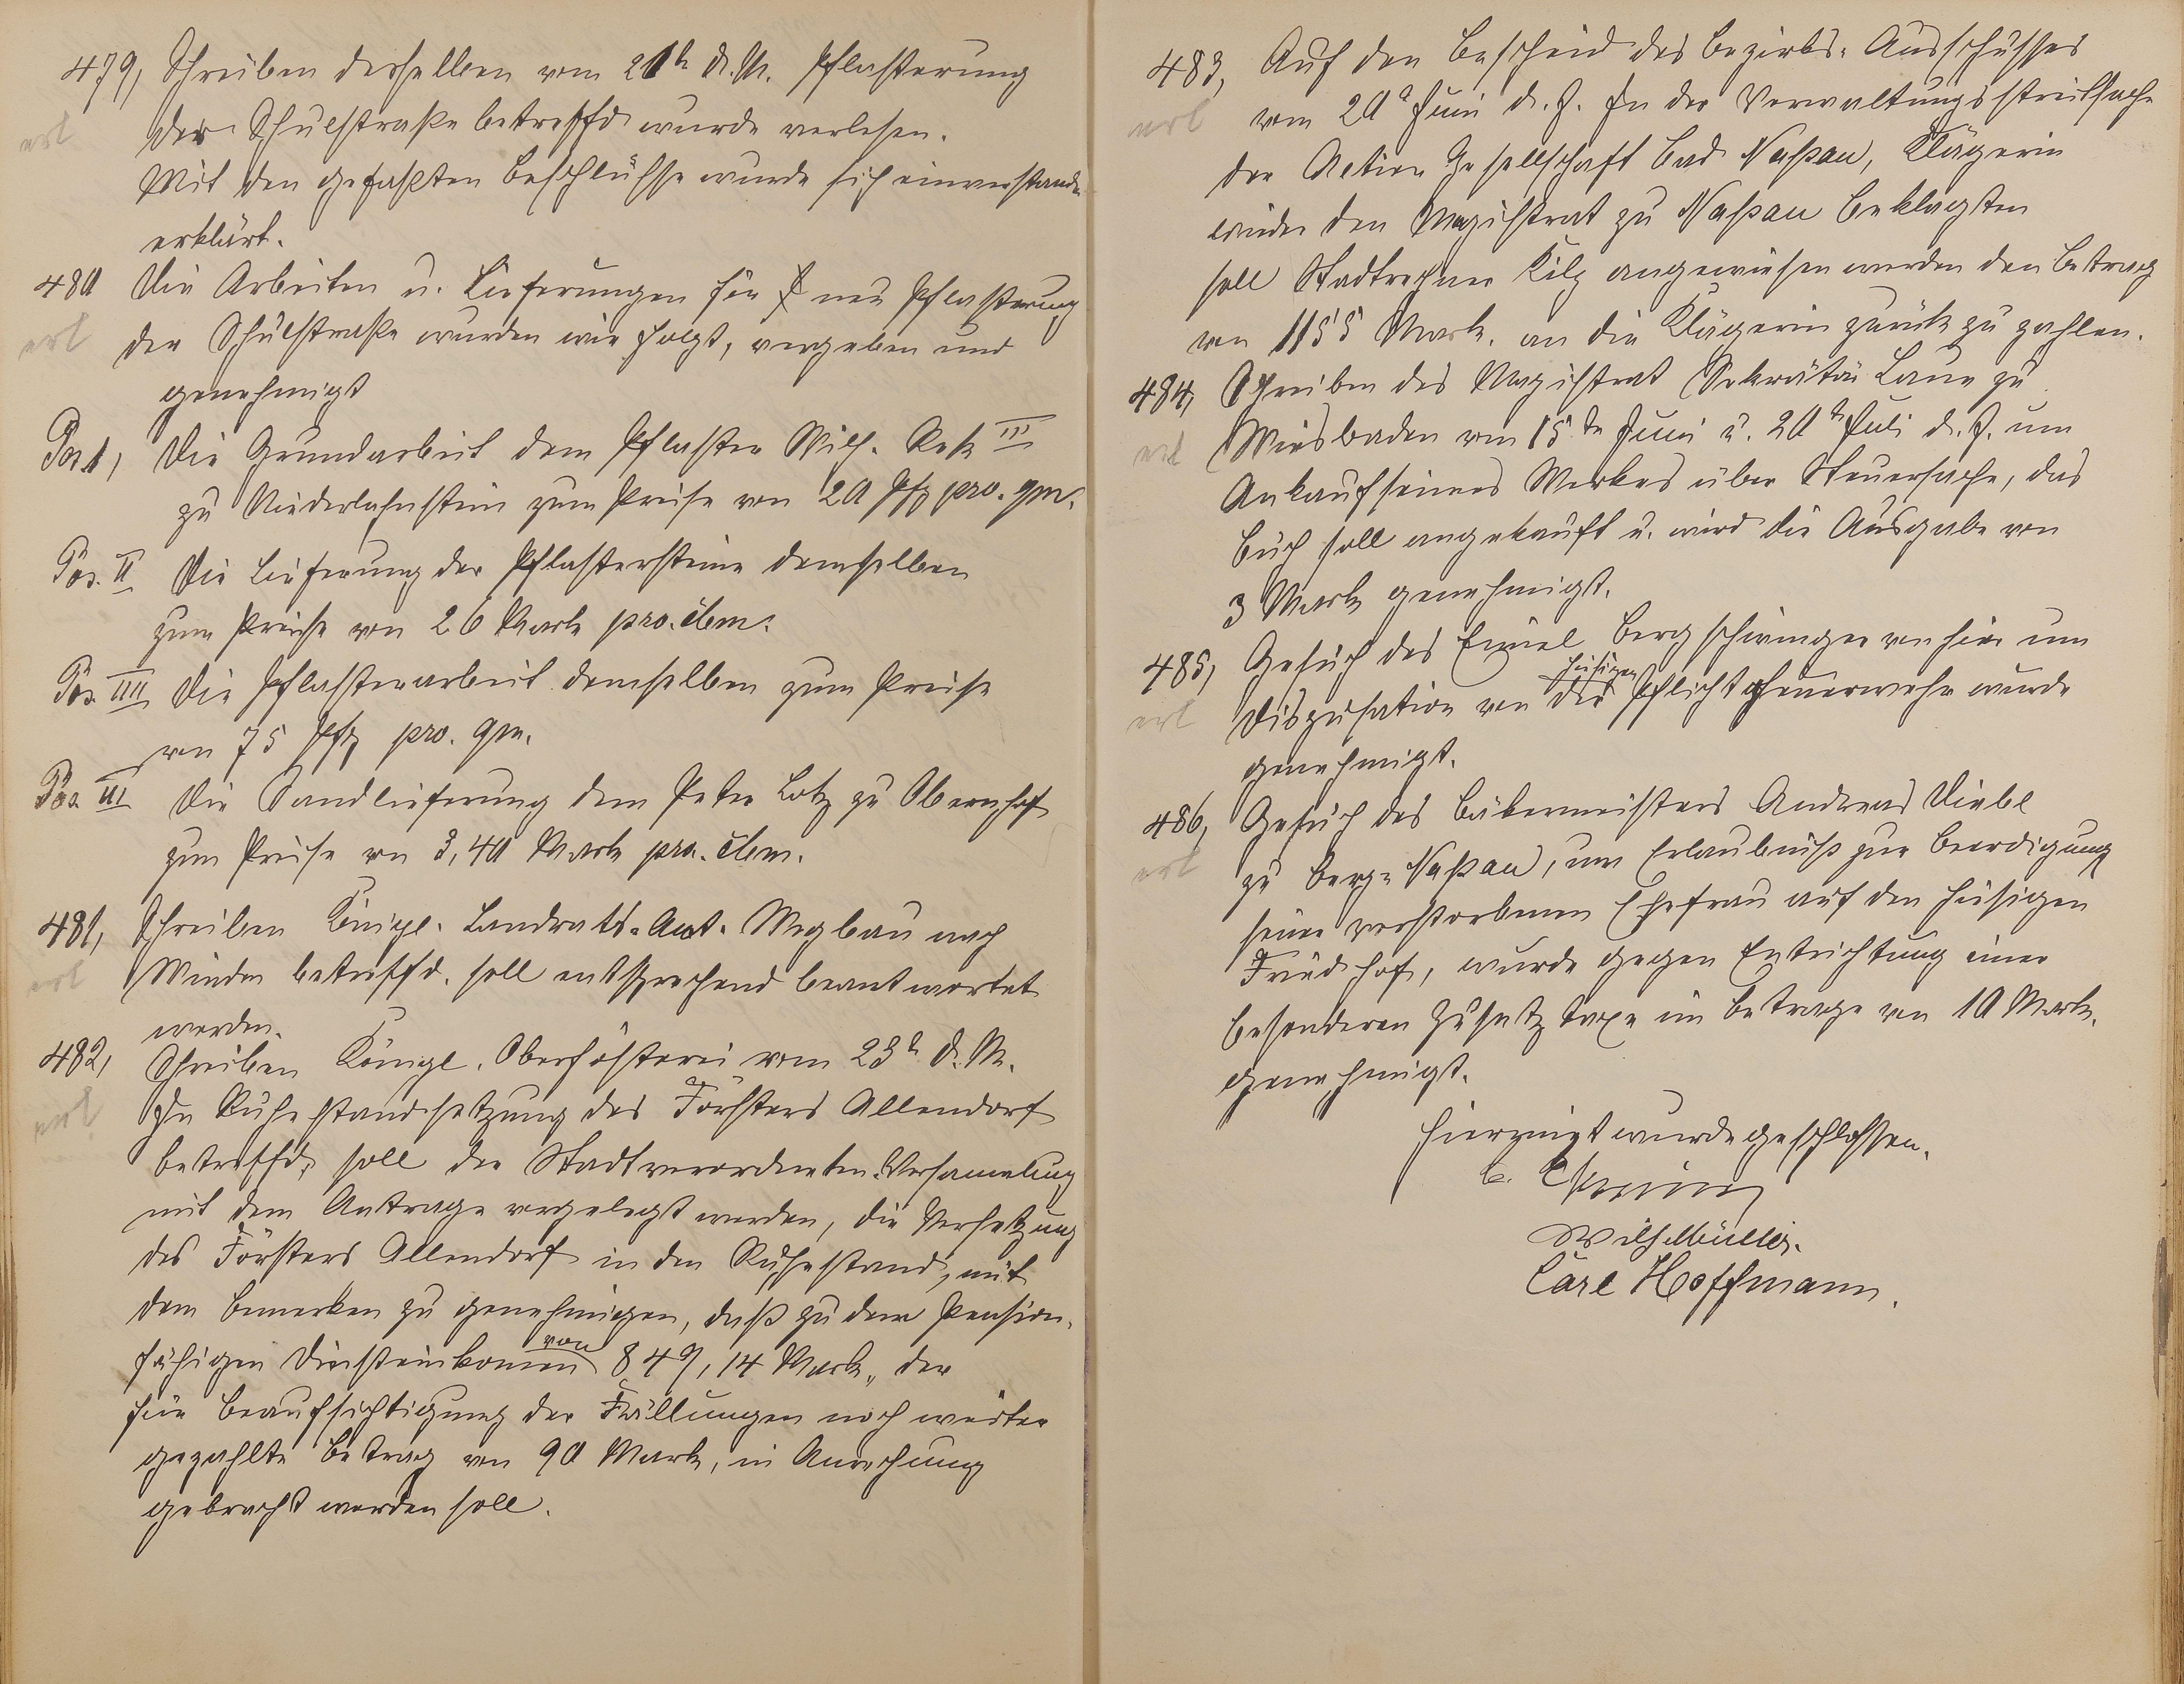 479, Schreiben desselben vom 21t d. M. Pflasterung
erl
der Schulstraße betreffd wurde verlesen.
Mit den gefaßten Beschlüsse wurde sich einverstanden
erklärt.
480 Die Arbeiten u. Lieferungen für neu Pflasterung
erl
der Schulstraße wurden wie folgt, vergeben und
genehmigt
Pos 1, Die Grundarbeit dem Pflaster Wilh. III
zu Niederlahnstein zum Preise von 20 Pfg pro. qm.
Pos. II Die Lieferung der Pflastersteine demselben
zum Preise von 26 Mark pro. cbm.
Pos. III Die Pflasterarbeit demselben zum Preise
von 75 Pfg pro. qm.
Pos. III Die Sandlieferung dem Peter Lotz zu Obernhof
zum Preise von 3,40 Mark pro. cbm.
481, Schreiben Königl. Landrats-Amt. Wegbau nach
erl
Winden betreffd. soll entsprechend beantwortet
werden.
482, Schreiben Königl. Oberförsterei vom 23t d. M.
erl
In Ruhestandsetzung des Försters Allendorf
betreffd, soll der Stadtverordneten-Versamlung
mit dem Antrage vorgelegt werden, die Versetzung
des Försters Allendorf in den Ruhestand, mit
dem Bemerken zu genehmigen, daß zu dem Pension-
fähigen Diensteinkomen von 849,14 Mark, der
für Beaufsichtigung der Fällungen noch weiter
gezahlte Betrag von 90 Mark, in Anrechung
gebracht werden soll.
483, Auf den Bescheid des Bezirks-Ausschusses
erl
vom 20t Juni d. J. In der Verwaltungsstreitsache
der Actien Gesellschaft Bad Naßau, Klägerin
wieder den Magistrat zu Naßau Beklagten
soll Stadtrechner Kilp angewiesen werden den Betrag
von 1155 Mark. an die Klägerin zurück zu zahlen.
484, Schreiben des Magistrat Sekretär Laux zu
erl
Wiesbaden vom 15. tn Juni u. 20 tn Juli d. J. um
Ankauf seines Werkes über Steuersache, das
Buch soll angekauft u. wird die Ausgabe von
3 Mark genehmigt.
485, Gesuch des Emiel Bergschwinger von hier um
erl
Dispusation von der hiesigen Pflichtfeuerwehr wurde
genehmigt.
486, Gesuch des Bäkermeisters Andreas Diebl
erl
zu Berg-Naßau, um Erlaubniß zur Beerdigung
seiner verstorbenen Ehefrau auf den hiesigen
Friedhof, wurde gegen Entrichtung einer
besonderen Zusatz taxe im Betrage von 10 Mark.
genehmigt.
Hiermit wurde geschlossen.
Wilh Müller.
Carl Hoffmann.